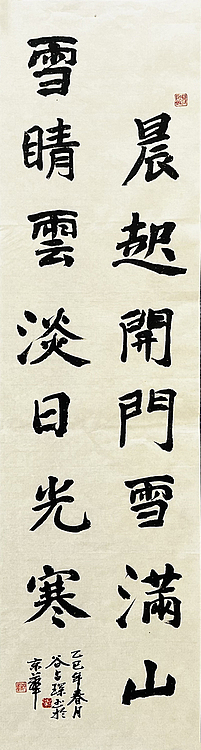 晨起開門雪滿山
雪晴雲淡日光寒
乙巳年春月
谷占琛书於
京華